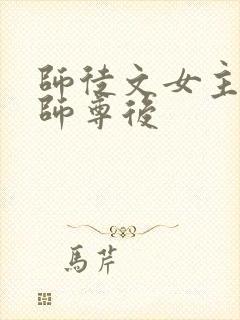 師徒文女主
師尊後
馬芹